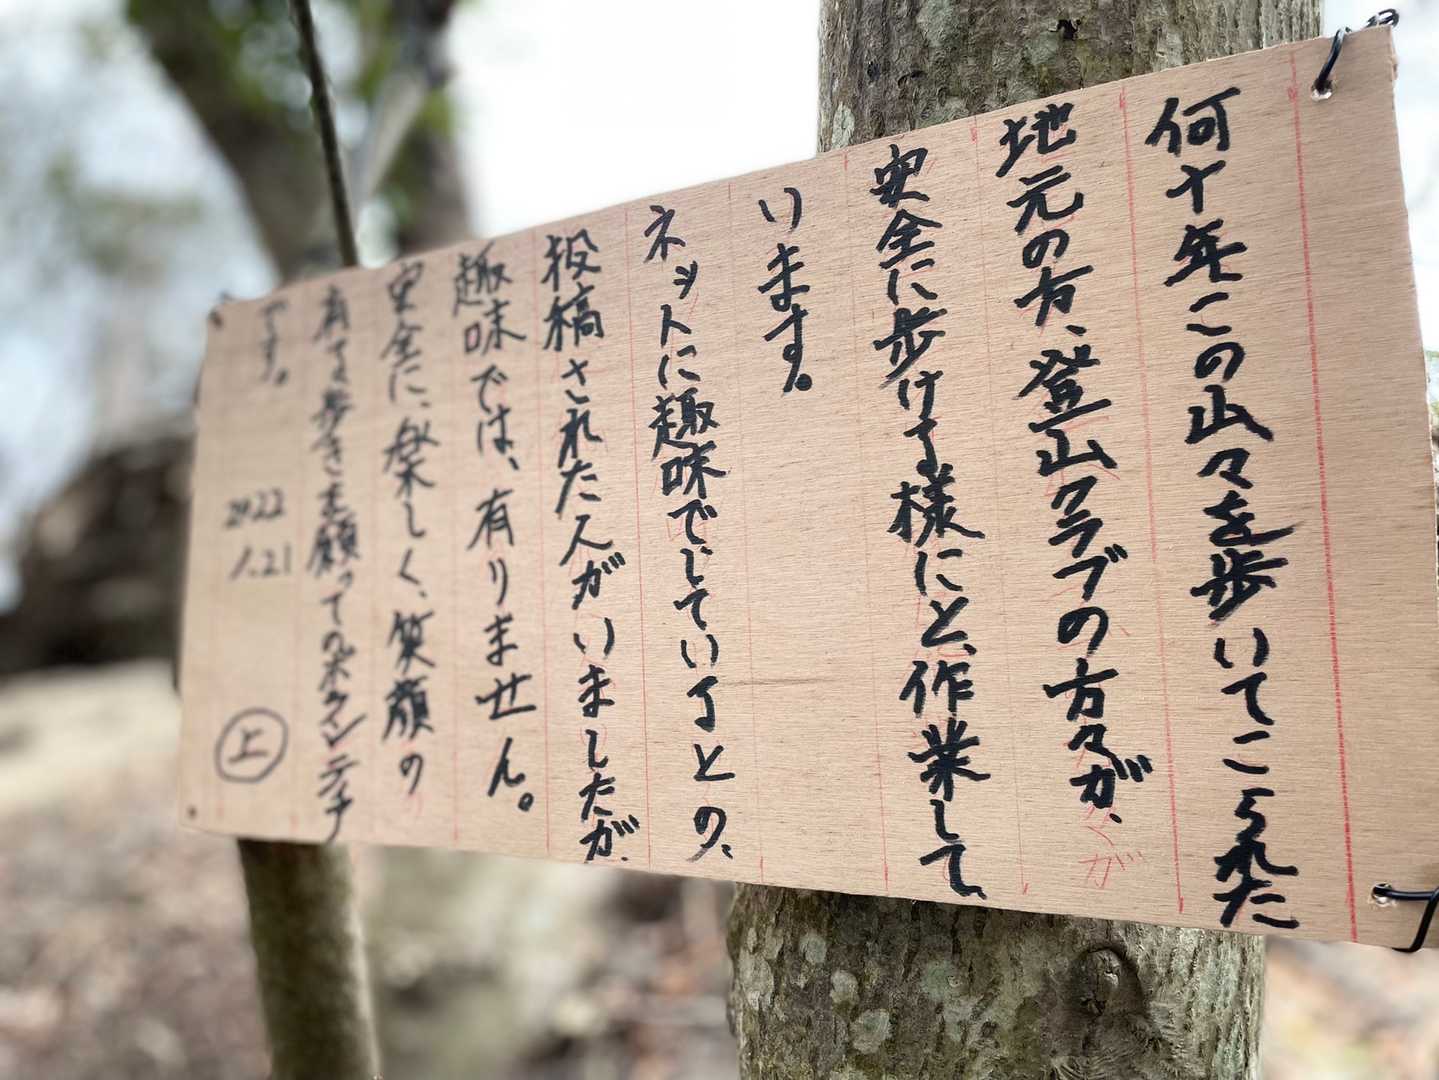 何十年この山々を歩いてこられた
地元の方、登山クラブの方々が、
安全に歩ける様にと、作業して
います。
ネットに趣味でしているとの、
投稿された人がいましたが、
趣味では、有りません。
安全に、楽しく、笑顔の
有る歩きを願ってのボランテチ
です。
2022
1.21
上